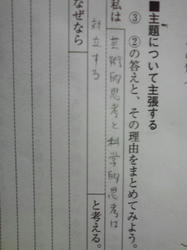 ■主題について主張する
③ ②の答えと、その理由をまとめてみよう。
私は
芸術的思考と科学的思考は
対立する
と考える。
なぜなら